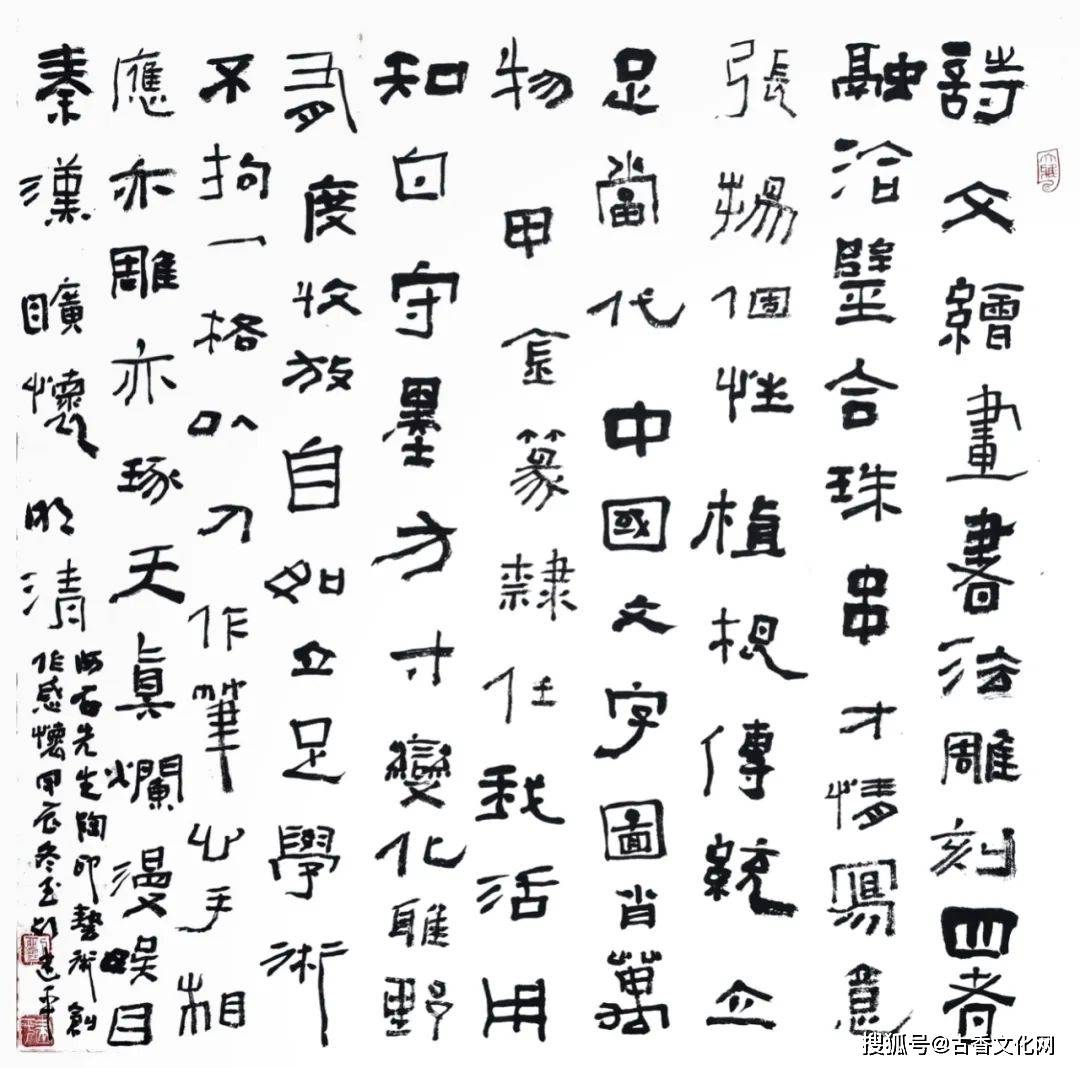 詩文繪畫書法雕刻四者
融洽璧合珠串才情寫意
張揚個性植根傳統立
足當代中國文字圖肖萬
物甲金篆隸任我活用
知白守墨方寸變化雕野
有度收放自如立足學術
不拘一格以刀作筆心手相
應亦雕亦琢天真爛漫娛目
秦漢曠懷明清
石先生陶印藝術創
作感懷甲辰冬至建平
搜狐号@古香文化网